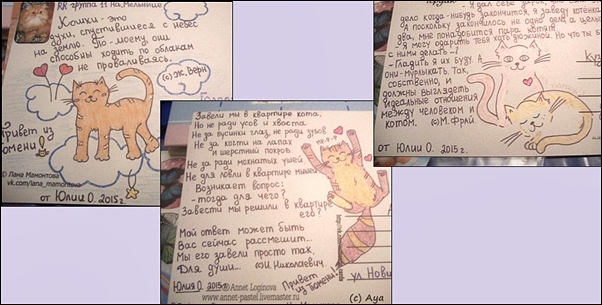 RR группа 11 На_Мельнице
Кошки - это
духи, спустившиеся с небес
на землю. По-моему, они
способны ходить по облакам
не проваливаясь.
(с) Ж. Верн
Привет из
Тюмени!
© Лана Мамонтова
vk.com/lana_mamontova
от Юлии О. 2015 г.
Завели мы в квартире кота,
Но не ради усов и хвоста
Не за бусинки глаз, не ради зубов
Не за когти на лапах
и шерстный покров.
Не за ради мохнатых ушей
Не для ловли в квартире мышей
Возникает вопрос:
- тогда для чего?
Завести мы решили в квартире
его?
Мой ответ может быть
Вас сейчас рассмешит...
Мы его завели просто так,
Для души... © И. Николаевич
Привет
из Тюмени!
Юлия О. 2015 © Annet Loginova
www.annet-pastel.livemaster.ru
ул. Нови
(c) Aya
- Я дал себе
дело когда-нибудь закончится, я заведу котёнка
А поскольку закончилось не одно дело а целых
два, мне понадобится пара котят.
- Я могу одарить тебя хоть дюжиной. Но что ты б
с ними делать -?
- Гладить я их буду. А
они - мурлыкать. Так,
собственно, и
должны выглядеть
идеальные отношения
между человеком и
котом. © М. Фрай
от Юлии О. 2015 г.